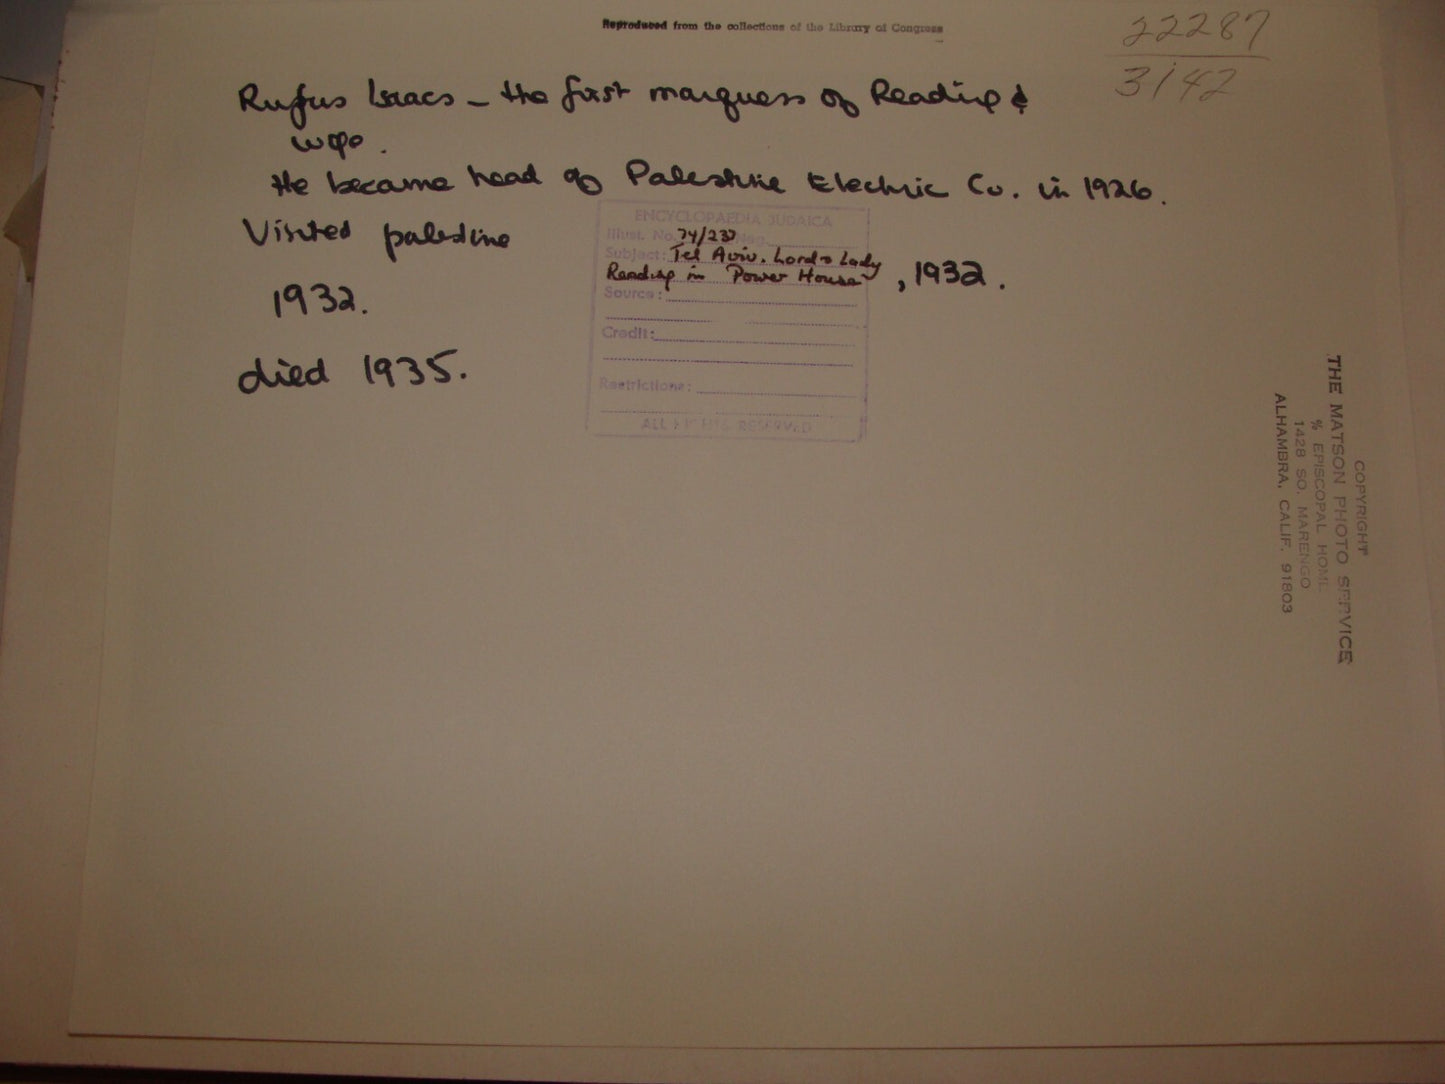 Reproduced from the collections of the Library of Congress
22287
3142
Rufus Isaacs - the first marquess of Reading &
wife.
He became head of Palestine Electric Co. in 1926.
Visited palestine
1932.
died 1935.
ENCYCLOPAEDIA JUDAICA
Illust. No. 74/237 Neg.
Subject: Tel Aviv. Lord & Lady
Reading in Power House, 1932.
Source:
Credit:
Restrictions:
ALL RIGHTS RESERVED
COPYRIGHT
THE MATSON PHOTO SERVICE
% EPISCOPAL HOME
1428 SO. MARENGO
ALHAMBRA, CALIF. 91803